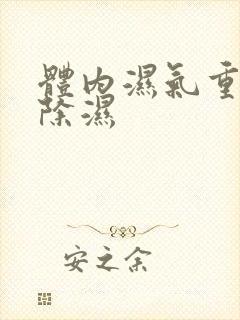 體內濕氣重
除濕
安之余